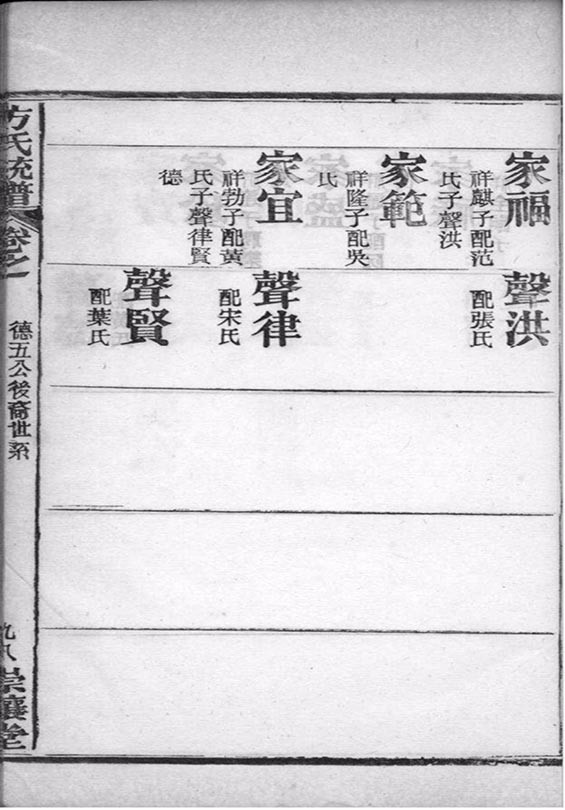 家福
祥麒子配范
氏子聲洪
家範
祥隆子配吳
氏
家宜
祥勃子配黃
氏子聲律賢
德
聲洪
配張氏
聲律
配宋氏
聲賢
配葉氏
方氏統譜
卷之一
德五公後裔世系
九八
崇讓堂